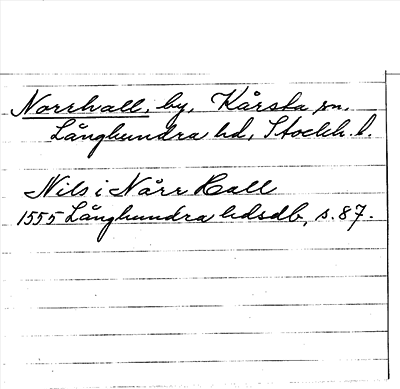 Norrhall, by, Kårsta sn,
Långhundra hd, Stockh. l.
Nils i Nårr Hall
1555 Långhundra hdsdb, s. 87.